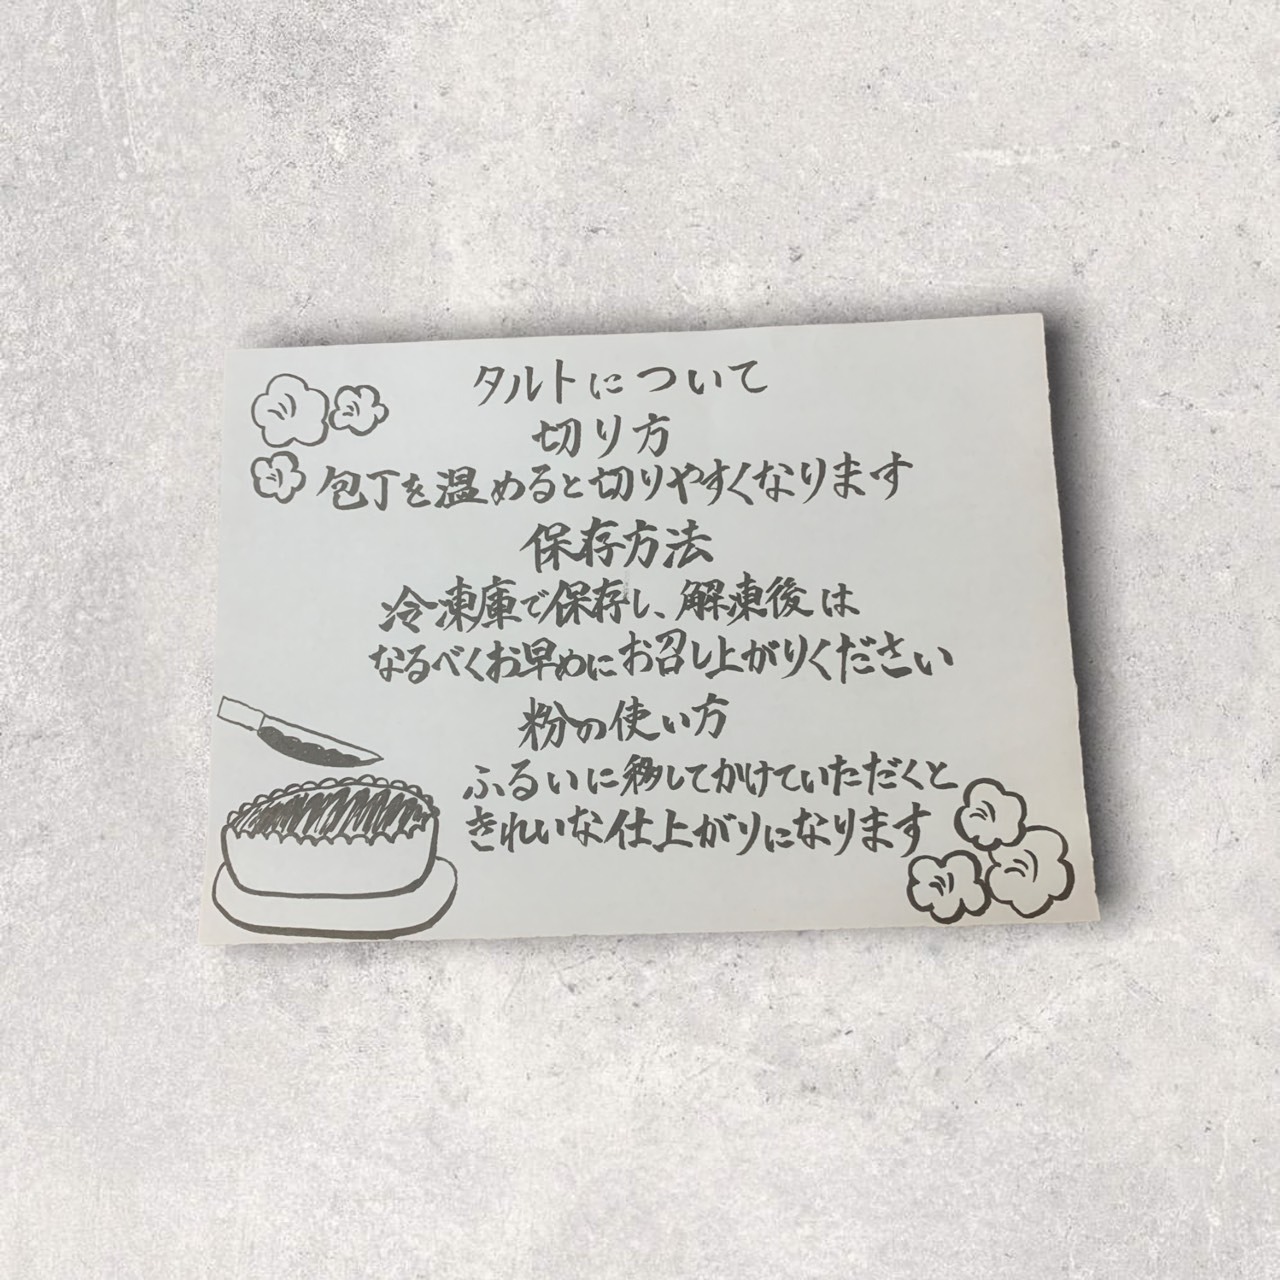 タルトについて
切り方
包丁を温めると切りやすくなります
保存方法
冷凍庫で保存し、解凍後は
なるべくお早めにお召し上がりください
粉の使い方
ふるいに移してかけていただくと
きれいな仕上がりになります